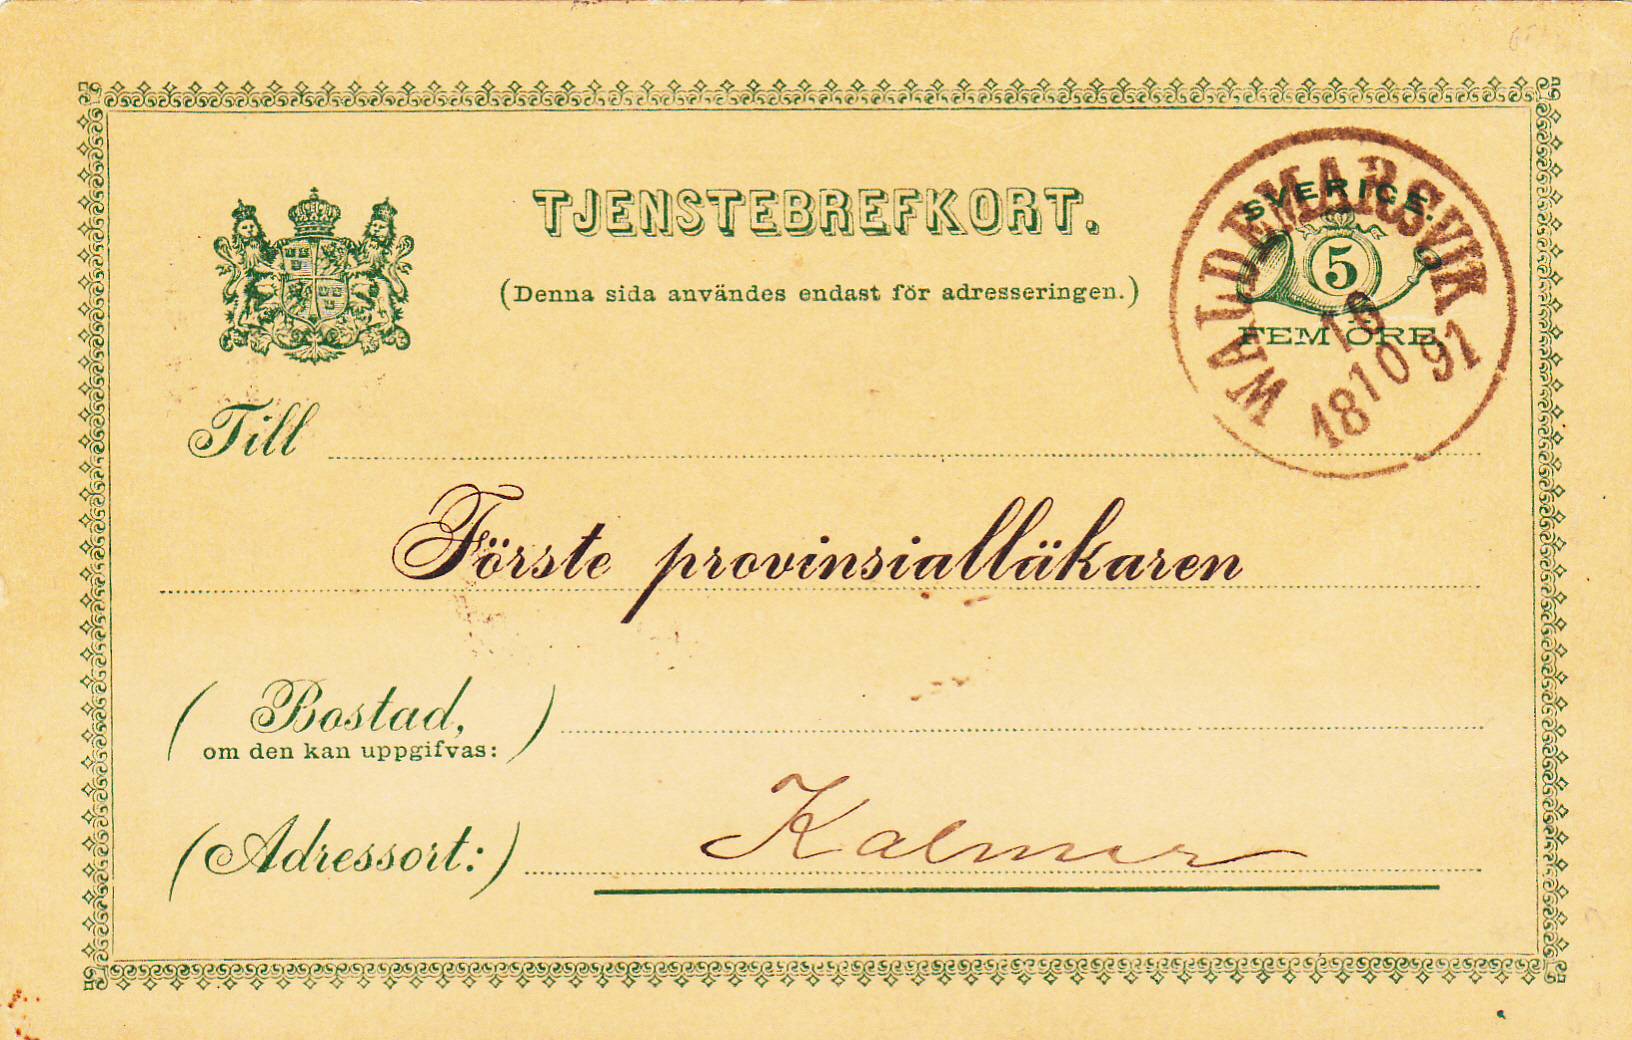 TJENSTEBREFKORT.
(Denna sida användes endast för adresseringen.)
SVERIGE.
5
FEM ÖRE
WALDEMARSVIK
10
1891
Till
Förste provinsialläkaren
(Bostad,
om den kan uppgifvas:)
(Adressort:) Kalmar